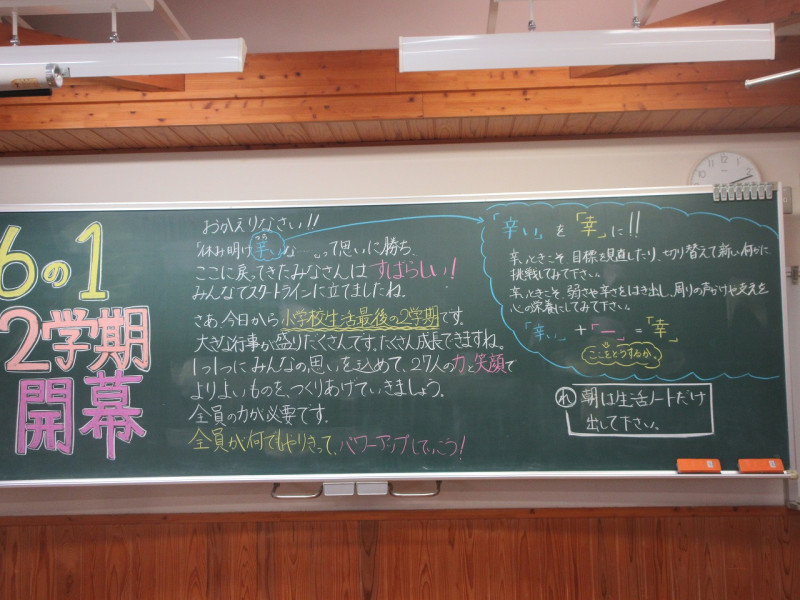 6の1
2学期
開幕
おかえりなさい!!
「休み明け辛いな―。」って思いに勝ち、
つら
ここに戻ってきたみなさんはすばらしい!
みんなでスタートラインに立てましたね。
さあ、今日から小学校生活最後の2学期です。
大きな行事が盛りだくさんです。たくさん成長できますね。
1つ1つにみんなの思いを込めて、27人の力と笑顔で
よりよいものを、つくりあげていきましょう。
全員の力が必要です。
全員が何でもやりきって、パワーアップしていこう!
「辛い」を「幸」に!!
辛いときこそ目標を見直したり、切り替えて新しい何かに
挑戦してみて下さい。
辛いときこそ、弱さや辛さをはき出し、周りの声かけや支えを
心の栄養にしてみて下さい。
「辛い」+「一」=「幸」
ここをどうするか
れ 朝は生活ノートだけ
出して下さい。